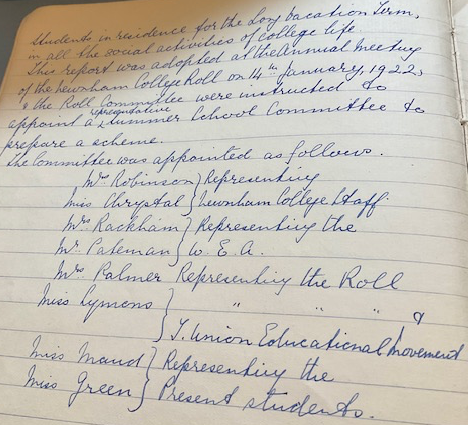 Students in residence for the Long Vacation Term,
in all the social activities of college life.
This report was adopted at the Annual Meeting
of the Newnham College Roll on 14th January, 1922,
& the Roll Committee were instructed to
representative
appoint a Summer School Committee to
prepare a scheme.
The Committee was appointed as follows.
Mrs Robinson } Representing
Miss Chrystal } Newnham College Staff.
Mrs Rackham } Representing the
Mr Pateman } W. E. A.
Mrs Palmer Representing the Roll
Miss Symons } " " " &
T. Union Educational Movement
Miss Maud } Representing the
Miss Green } Present students.